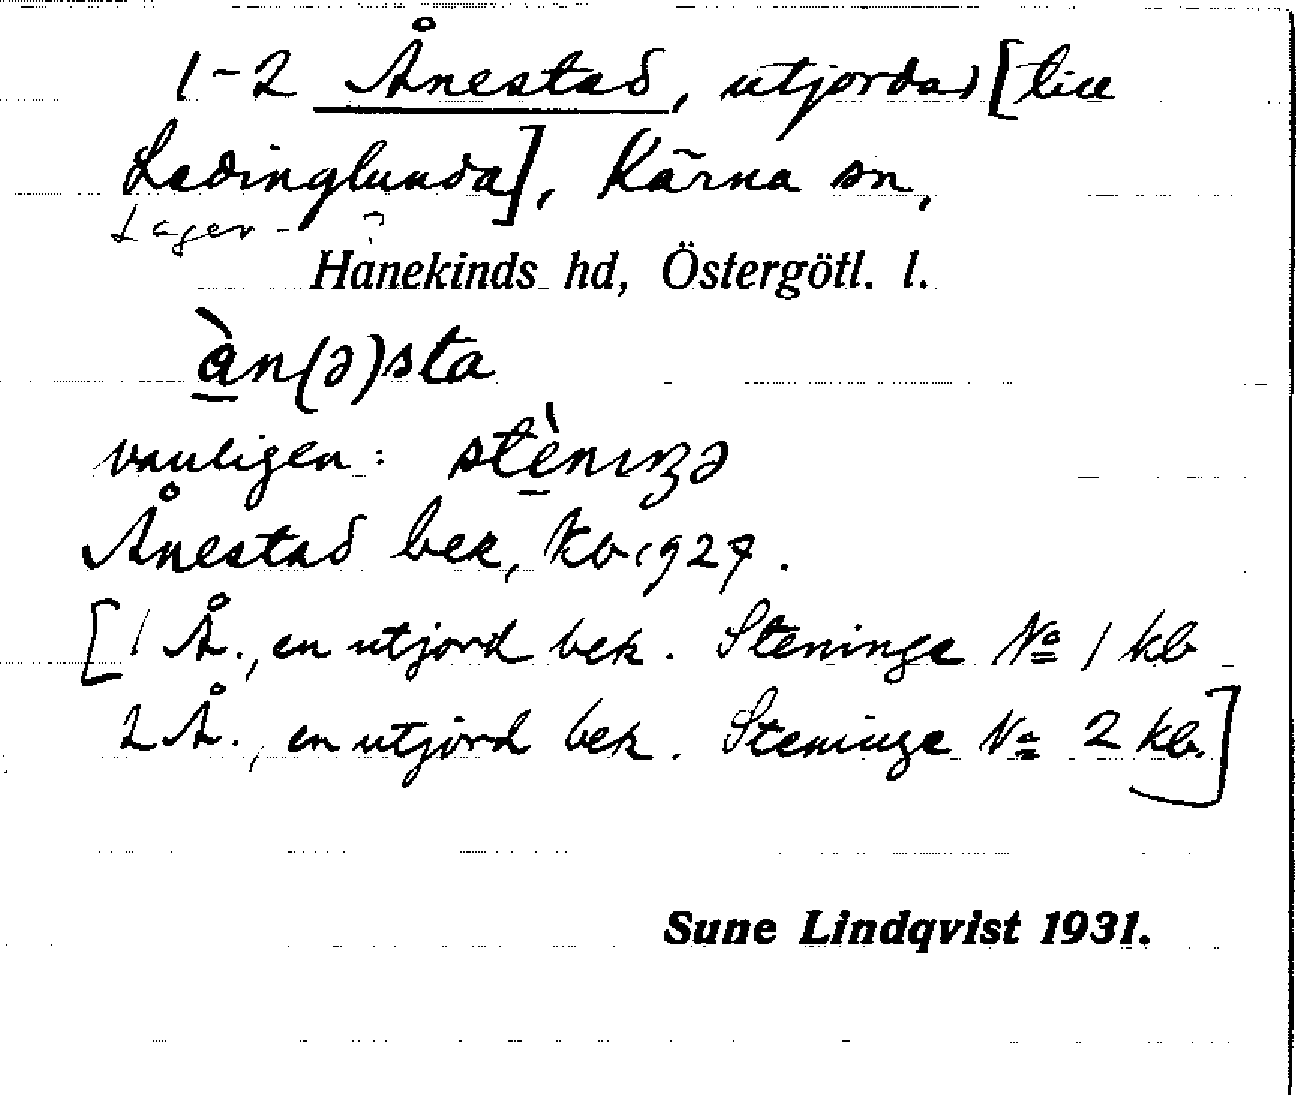 1-2 Ånestad, utjordar [till
Ladinglunda], Kärna sn,
Lager- ?
Hanekinds hd, Östergötl. l.
àn(ə)sta
vanligen: stènɪŋə
Ånestad bek, kb 1927.
[1 Å., en utjord bek. Steninge № 1 kb
2 Å., en utjord bek. Steninge № 2 kb.]
Sune Lindqvist 1931.